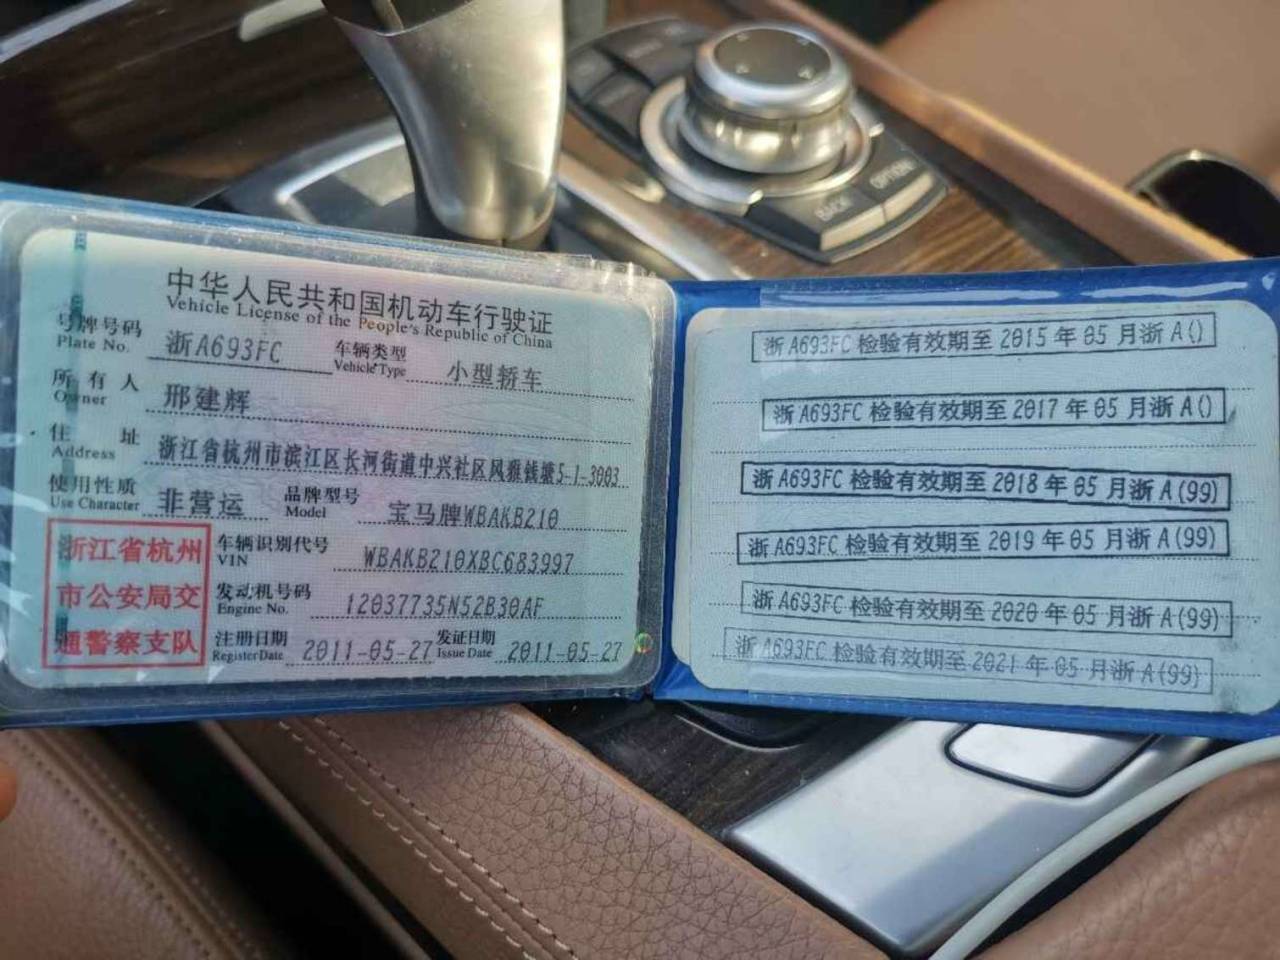 中华人民共和国机动车行驶证
Vehicle License of the People's Republic of China
号牌号码 浙A693FC 车辆类型 小型轿车
Plate No. Vehicle Type
所有人 邢建辉
Owner
住址 浙江省杭州市滨江区长河街道中兴社区风雅钱塘5-1-3003
Address
使用性质 非营运 品牌型号 宝马牌WBAKB210
Use Character Model
浙江省杭州市公安局交通警察支队
车辆识别代号 WBAKB210XBC683997
VIN
发动机号码 12037735N52B30AF
Engine No.
注册日期 2011-05-27 发证日期 2011-05-27
Register Date Issue Date
浙A693FC 检验有效期至 2015 年 05 月浙 A()
浙A693FC 检验有效期至 2017 年 05 月浙 A()
浙A693FC 检验有效期至 2018 年 05 月浙 A(99)
浙A693FC 检验有效期至 2019 年 05 月浙 A(99)
浙A693FC 检验有效期至 2020 年 05 月浙 A(99)
浙A693FC 检验有效期至 2021 年 05 月浙 A(99)
OPTION
BACK